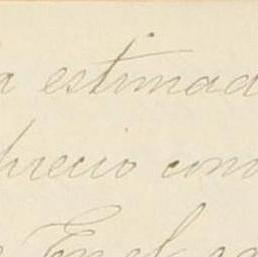 a estimad
precio com
En el ca